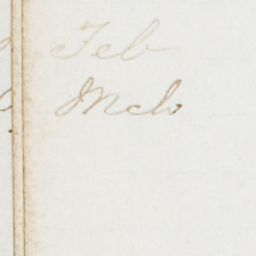 Feb
Mch